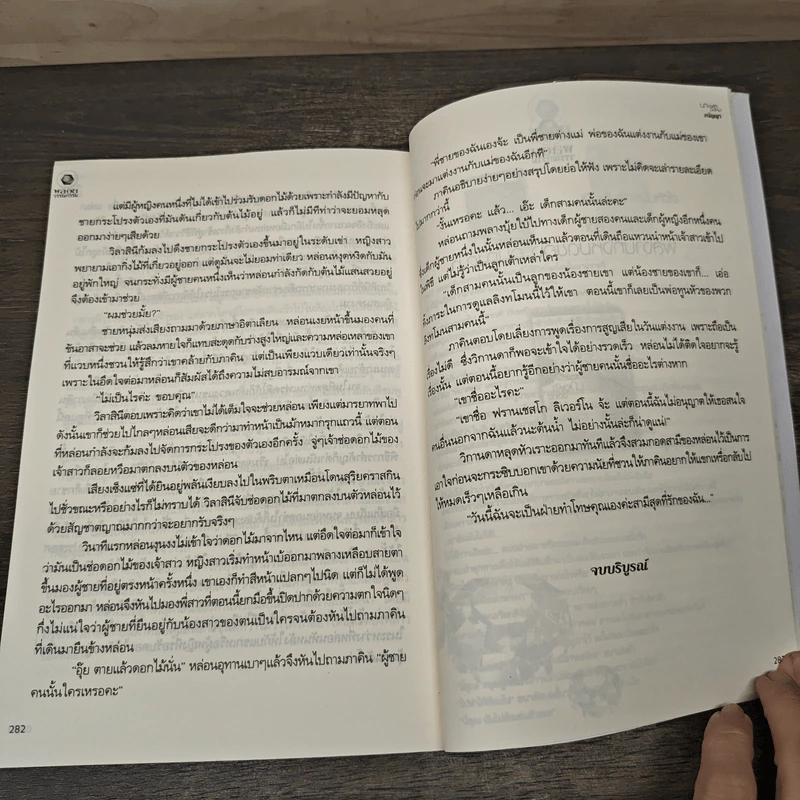 พลอย
วรรณกรรม
แต่มีผู้หญิงคนหนึ่งที่ไม่ได้เข้าไปร่วมรับดอกไม้ด้วยเพราะกำลังมีปัญหากับ
ชายกระโปรงตัวเองที่มันดันเกี่ยวกับต้นไม้อยู่ แล้วก็ไม่มีทีท่าว่าจะยอมหลุด
ออกมาง่ายๆเสียด้วย
วิลาสินีก้มลงไปดึงชายกระโปรงตัวเองขึ้นมาอยู่ในระดับเข่า หญิงสาว
พยายามเอากิ่งไม้ที่เกี่ยวอยู่ออก แต่ดูมันจะไม่ยอมท่าเดียว หล่อนหงุดหงิดกับมัน
อยู่พักใหญ่ จนกระทั่งมีผู้ชายคนหนึ่งเห็นว่าหล่อนกำลังกัดกับต้นไม้แสนสวยอยู่
จึงต้องเข้ามาช่วย
“ผมช่วยมั้ย?”
ชายหนุ่มส่งเสียงถามมาด้วยภาษาอิตาเลียน หล่อนเงยหน้าขึ้นมองคนที่
ขันอาสาจะช่วย แล้วลมหายใจก็แทบสะดุดกับร่างสูงใหญ่และความหล่อเหลาของเขา
ที่แวบหนึ่งชวนให้รู้สึกว่าเขาคล้ายกับภาคิน แต่เป็นเพียงแวบเดียวเท่านั้นจริงๆ
เพราะในอึดใจต่อมาหล่อนก็สัมผัสได้ถึงความไม่สบอารมณ์จากเขา
“ไม่เป็นไรค่ะ ขอบคุณ”
วิลาสินีตอบเพราะคิดว่าเขาไม่ได้เต็มใจจะช่วยหล่อน เพียงแต่มารยาทพาไป
ดังนั้นเขาก็ช่วยไปไกลๆหล่อนเสียจะดีกว่ามาทำหน้าเป็นม้าหมากรุกแถวนี้ แต่ตอน
ที่หล่อนกำลังจะก้มลงไปจัดการกระโปรงของตัวเองอีกครั้ง จู่ๆเจ้าช่อดอกไม้ของ
เจ้าสาวก็ลอยหวือมาตกลงบนตัวของหล่อน
เสียงเซ็งแซ่ที่ได้ยินอยู่พลันเงียบลงไปในพริบตาเหมือนโดนสุริยคราสกิน
ไปชั่วขณะหรืออย่างไรก็ไม่ทราบได้ วิลาสินีจับช่อดอกไม้ที่มาตกลงบนตัวหล่อนไว้
ด้วยสัญชาตญาณมากกว่าจะอยากรับจริงๆ
วินาทีแรกหล่อนงุนงงไม่เข้าใจว่าดอกไม้มาจากไหน แต่อึดใจต่อมาก็เข้าใจ
ว่ามันเป็นช่อดอกไม้ของเจ้าสาว หญิงสาวเริ่มทำหน้าเบ้ออกมาพลางเหลือบสายตา
ขึ้นมองผู้ชายที่อยู่ตรงหน้าครั้งหนึ่ง เขาเองก็ทำสีหน้าแปลกๆไปนิด แต่ก็ไม่ได้พูด
อะไรออกมา หล่อนจึงหันไปมองพี่สาวที่ตอนนี้ยกมือขึ้นปิดปากด้วยความตกใจนิดๆ
กึ่งไม่แน่ใจว่าผู้ชายที่ยืนอยู่กับน้องสาวของตนเป็นใครจนต้องหันไปถามภาคิน
ที่เดินมายืนข้างหล่อน
“อุ๊ย ตายแล้วดอกไม้นั่น” หล่อนอุทานเบาๆแล้วจึงหันไปถามภาคิน “ผู้ชาย
คนนั้นใครเหรอคะ”
282
“พี่ชายของฉันเองจ้ะ เป็นพี่ชายต่างแม่ พ่อของฉันแต่งงานกับแม่ของเขา
ก่อนจะมาแต่งงานกับแม่ของฉันอีกที”
ภาคินอธิบายง่ายๆอย่างสรุปโดยย่อให้ฟัง เพราะไม่คิดจะเล่ารายละเอียด
ไปมากกว่านี้
“งั้นเหรอคะ แล้ว... เอ๊ะ เด็กสามคนนั้นล่ะคะ”
หล่อนถามพลางบุ้ยใบ้ไปทางเด็กผู้ชายสองคนและเด็กผู้หญิงอีกหนึ่งคน
ซึ่งเด็กผู้ชายหนึ่งในนั้นหล่อนเห็นมาแล้วตอนที่เดินถือแหวนนำหน้าเจ้าสาวเข้าไป
ในพิธี แต่ไม่รู้ว่าเป็นลูกเต้าเหล่าใคร
“เด็กสามคนนั้นเป็นลูกของน้องชายเขา แต่น้องชายของเขาก็... เอ่อ
ทิ้งภาระในการดูแลลิงทโมนนี้ไว้ให้เขา ตอนนี้เขาก็เลยเป็นพ่อทูนหัวของพวก
ลิงทโมนสามคนนี้”
ภาคินตอบโดยเลี่ยงการพูดเรื่องการสูญเสียในวันแต่งงาน เพราะถือเป็น
เรื่องไม่ดี ซึ่งวิกานดาก็พอจะเข้าใจได้อย่างรวดเร็ว หล่อนไม่ได้ติดใจอยากจะรู้
เรื่องนั้น แต่ตอนนี้อยากรู้อีกอย่างว่าผู้ชายคนนั้นชื่ออะไรต่างหาก
“เขาชื่ออะไรคะ”
“เขาชื่อ ฟรานเชสโก ลิเวอร์โน จ้ะ แต่ตอนนี้ฉันไม่อนุญาตให้เธอสนใจ
คนอื่นนอกจากฉันแล้วนะต้นน้ำ ไม่อย่างนั้นล่ะก็น่าดูแน่”
วิกานดาหลุดหัวเราะออกมาทันทีแล้วจึงสวมกอดสามีของหล่อนไว้เป็นการ
เอาใจก่อนจะกระซิบบอกเขาด้วยความนัยที่ชวนให้ภาคินอยากให้แขกเหรื่อกลับไป
ให้หมดเร็วๆเหลือเกิน
“วันนี้ฉันจะเป็นฝ่ายทำโทษคุณเองค่ะสามีสุดที่รักของฉัน...”
จบบริบูรณ์